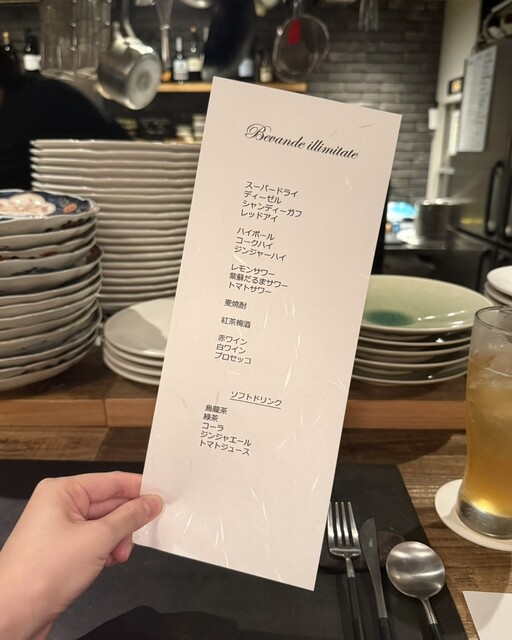 Bevande illimitate
スーパードライ
ディーゼル
シャンディーガフ
レッドアイ
ハイボール
コークハイ
ジンジャーハイ
レモンサワー
紫蘇だるまサワー
トマトサワー
麦焼酎
紅茶梅酒
赤ワイン
白ワイン
プロセッコ
ソフトドリンク
烏龍茶
緑茶
コーラ
ジンジャエール
トマトジュース